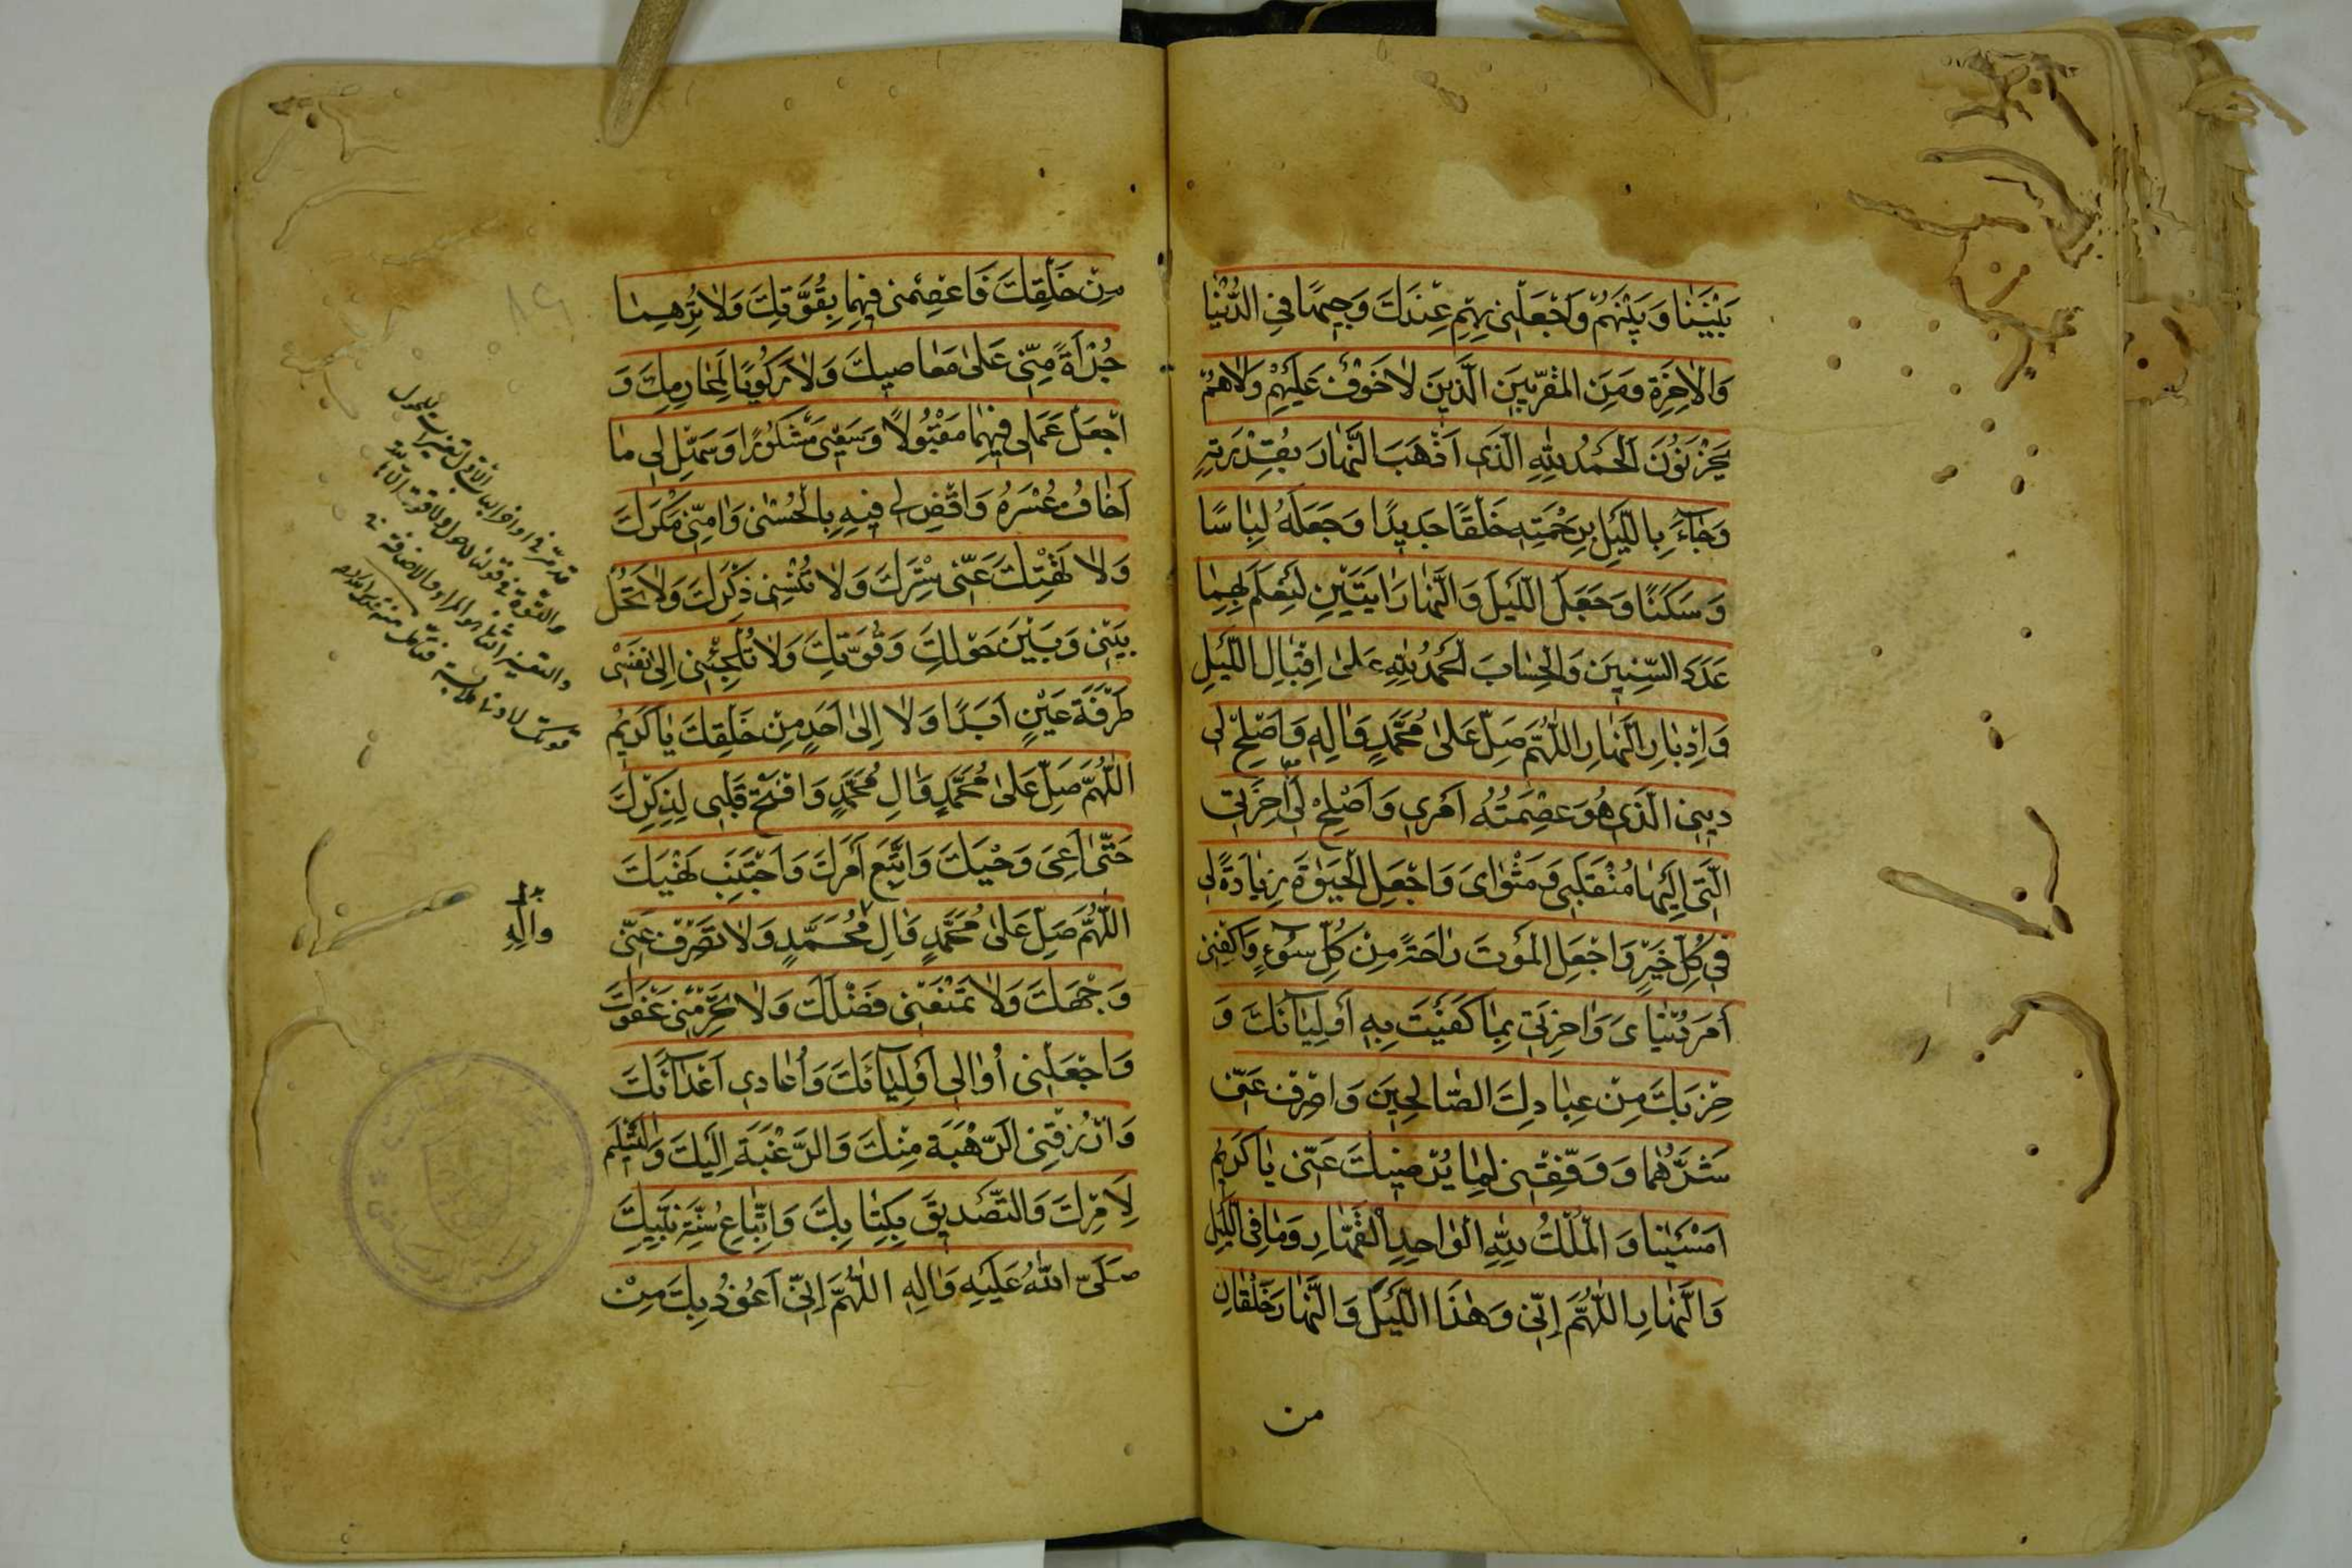 بَيْنَنَا وَبَيْنَهُمْ وَاجْعَلْنِي بِهِمْ عِنْدَكَ وَجِيهًا فِي الدُّنْيَا
وَالْاٰخِرَةِ وَمِنَ الْمُقَرَّبِينَ الَّذِينَ لَا خَوْفٌ عَلَيْهِمْ وَلَا هُمْ
يَحْزَنُونَ اَلْحَمْدُ لِلّٰهِ الَّذِي اَذْهَبَ النَّهَارَ بِقُدْرَتِهِ
وَجَاۤءَ بِاللَّيْلِ بِرَحْمَتِهِ خَلْقًا جَدِيدًا وَجَعَلَهُ لِبَاسًا
وَسَكَنًا وَجَعَلَ اللَّيْلَ وَالنَّهَارَ اٰيَتَيْنِ لِيُعْلَمَ بِهِمَا
عَدَدَ السِّنِينَ وَالْحِسَابَ اَلْحَمْدُ لِلّٰهِ عَلَى اِقْبَالِ اللَّيْلِ
وَاِدْبَارِ النَّهَارِ اَللّٰهُمَّ صَلِّ عَلَى مُحَمَّدٍ وَاٰلِهِ وَاَصْلِحْ لِي
دِينِي الَّذِي هُوَ عِصْمَتُهُ اَمْرِي وَاَصْلِحْ لِي اٰخِرَتِي
الَّتِي اِلَيْهَا مُنْقَلَبِي وَمَثْوَايَ وَاجْعَلِ الْحَيٰوةَ زِيَادَةً لِي
فِي كُلِّ خَيْرٍ وَاجْعَلِ الْمَوْتَ رَاحَةً مِنْ كُلِّ سُوۤءٍ وَاكْفِنِي
اَمْرَ دُنْيَايَ وَاٰخِرَتِي بِمَا كَفَيْتَ بِهِ اَوْلِيَاۤئَكَ وَ
حِزْبَكَ مِنْ عِبَادِكَ الصَّالِحِينَ وَاصْرِفْ عَنِّي
شَرَّهُمَا وَوَفِّقْنِي لِمَا يُرْضِيكَ عَنِّي يَا كَرِيمُ
اَمْسَيْنَا وَالْمُلْكُ لِلّٰهِ الْوَاحِدِ الْقَهَّارِ وَمَا فِي اللَّيْلِ
وَالنَّهَارِ اَللّٰهُمَّ اِنِّي وَهٰذَا اللَّيْلَ وَالنَّهَارَ خَلْقَانِ
من
مِنْ خَلْقِكَ فَاعْصِمْنِي فِيهِمَا بِقُوَّتِكَ وَلَا تُرِهِمَا
جُرْاَةً مِنِّي عَلَى مَعَاصِيكَ وَلَا رُكُوبًا لِمَحَارِمِكَ وَ
اجْعَلْ عَمَلِي فِيهِمَا مَقْبُولًا وَسَعْيِي مَشْكُورًا وَسَهِّلْ لِي مَا
اَخَافُ عُسْرَهُ وَاقْضِ لِي فِيهِ بِالْحُسْنٰى وَاٰمِنِّي مَكْرَكَ
وَلَا تَهْتِكْ عَنِّي سِتْرَكَ وَلَا تُنْسِنِي ذِكْرَكَ وَلَا تَحُلْ
بَيْنِي وَبَيْنَ حَوْلِكَ وَقُوَّتِكَ وَلَا تُلْجِئْنِي اِلَى نَفْسِي
طَرْفَةَ عَيْنٍ اَبَدًا وَلَا اِلَى اَحَدٍ مِنْ خَلْقِكَ يَا كَرِيمُ
اَللّٰهُمَّ صَلِّ عَلَى مُحَمَّدٍ وَاٰلِ مُحَمَّدٍ وَافْتَحْ قَلْبِي لِذِكْرِكَ
حَتّٰى اَعِيَ وَحْيَكَ وَاَتَّبِعَ اَمْرَكَ وَاَجْتَنِبَ نَهْيَكَ
اَللّٰهُمَّ صَلِّ عَلَى مُحَمَّدٍ وَاٰلِ مُحَمَّدٍ وَلَا تَصْرِفْ عَنِّي
وَجْهَكَ وَلَا تَمْنَعْنِي فَضْلَكَ وَلَا تَحْرِمْنِي عَفْوَكَ
وَاجْعَلْنِي اُوَالِي اَوْلِيَاۤئَكَ وَاُعَادِي اَعْدَاۤئَكَ
وَارْزُقْنِي الرَّهْبَةَ مِنْكَ وَالرَّغْبَةَ اِلَيْكَ وَالتَّسْلِيمَ
لِاَمْرِكَ وَالتَّصْدِيقَ بِكِتَابِكَ وَاتِّبَاعَ سُنَّةِ نَبِيِّكَ
صَلَّى اللّٰهُ عَلَيْهِ وَاٰلِهِ اَللّٰهُمَّ اِنِّي اَعُوذُ بِكَ مِنْ
وَاٰلِهِ